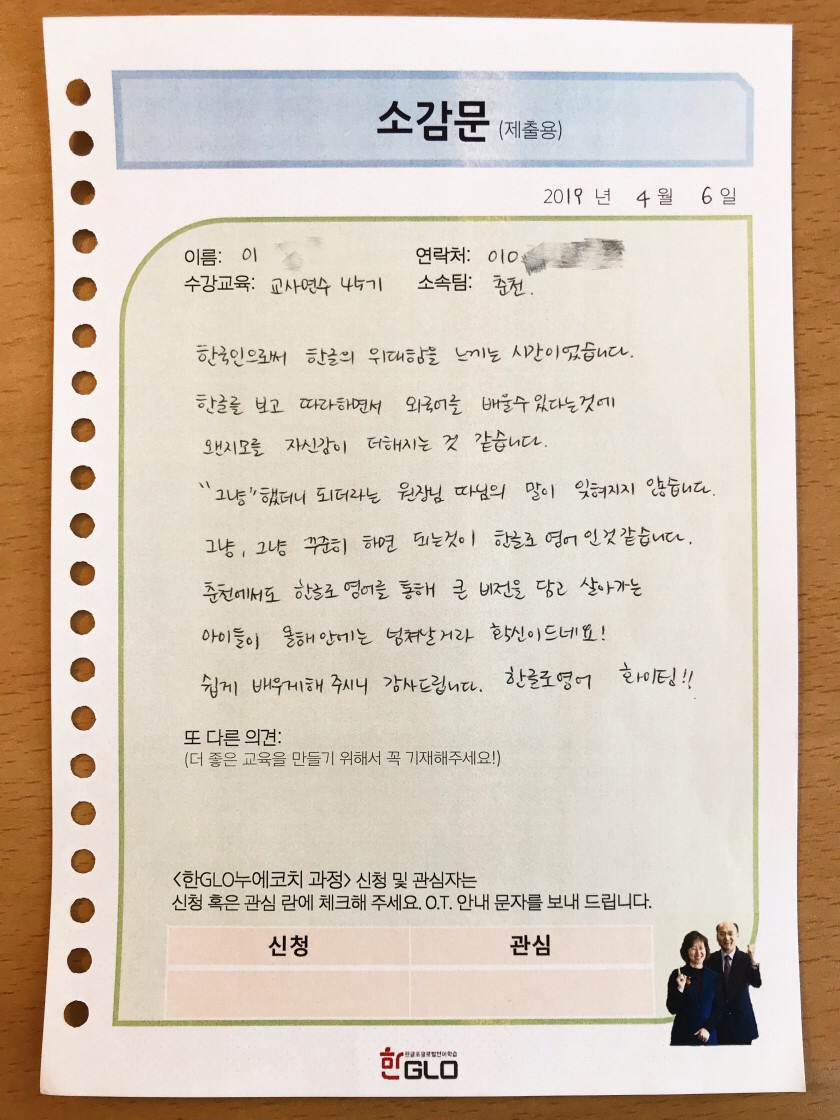 소감문 (제출용)
2019 년 4 월 6 일
이름: 이
연락처: 010
수강교육: 교사연수 45기
소속팀: 춘천.
한국인으로써 한글의 위대함을 느끼는 시간이었습니다.
한글를 보고 따라하면서 외국어를 배울수 있다는것에
왠지모를 자신감이 더해지는 것 같습니다.
"그냥"했더니 되더라는 원장님 따님의 말이 잊혀지지 않습니다.
그냥, 그냥 꾸준히 하면 되는것이 한글로 영어인것같습니다.
춘천에서도 한글로 영어를 통해 큰 비전을 담고 살아가는
아이들이 올해안에는 넘쳐날거라 확신이드네요!
쉽게 배우게해 주시니 감사드립니다. 한글로영어 화이팅!!
또 다른 의견:
(더 좋은 교육을 만들기 위해서 꼭 기재해주세요!)
<한GLO누에코치 과정> 신청 및 관심자는
신청 혹은 관심 란에 체크해 주세요. O.T. 안내 문자를 보내 드립니다.
신청 관심
한글로글로벌언어학습
한GLO